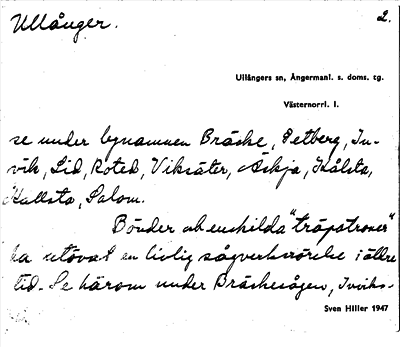 Ullånger. 2.
Ullångers sn, Ångermanl. s. doms. tg.
Västernorrl. l.
se under bynamnen Bräcke, Getberg, In-
vik, Lid, Roted, Viksäter, Äskja, Hålsta,
Kallsta, Salom.
Bönder och enskilda "träpatroner"
ha utövat en livlig sågverksrörelse i äldre
tid. Se härom under Bräckesågen, Inviks-
Sven Hiller 1947